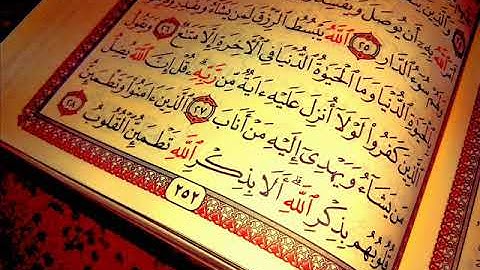 ٱللَّهُ بِهِۦٓ أَن يُوصَلَ
وَلَهُمْ سُوٓءُ ٱلدَّارِ ٢٥ ٱللَّهُ يَبْسُطُ ٱلرِّزْقَ لِمَن يَشَآءُ وَيَقْدِرُ
ٱلْحَيَوٰةِ ٱلدُّنْيَا وَمَا ٱلْحَيَوٰةُ ٱلدُّنْيَا فِي ٱلْءَاخِرَةِ إِلَّا مَتَٰعٌ ٢٦ وَيَقُولُ
ٱلَّذِينَ كَفَرُوا۟ لَوْلَآ أُنزِلَ عَلَيْهِ ءَايَةٌ مِّن رَّبِّهِۦ قُلْ إِنَّ ٱللَّهَ يُضِلُّ
مَن يَشَآءُ وَيَهْدِىٓ إِلَيْهِ مَنْ أَنَابَ ٢٧ ٱلَّذِينَ ءَامَنُوا۟ وَتَطْمَئِنُّ
قُلُوبُهُم بِذِكْرِ ٱللَّهِ أَلَا بِذِكْرِ ٱللَّهِ تَطْمَئِنُّ ٱلْقُلُوبُ ٢٨
٢٥٢